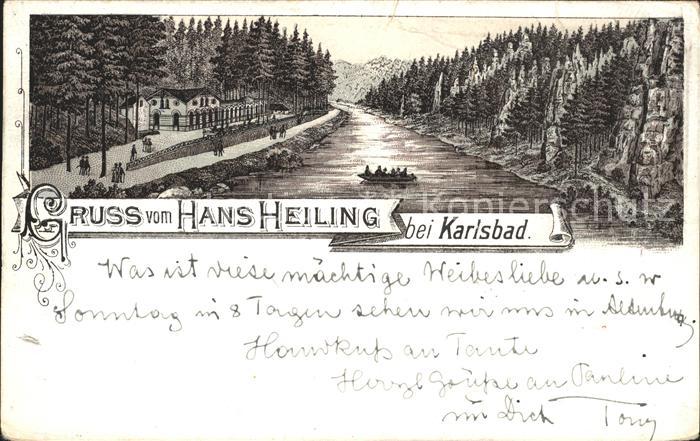 GRUSS vom HANS HEILING
bei Karlsbad.
Kopierschutz
Was ist diese mächtige Weibesliebe u. s. w
Sonntag in 8 Tagen sehen wir uns in
Handkuß an Tante
Herzl Grüße an Pauline
Dich Tony